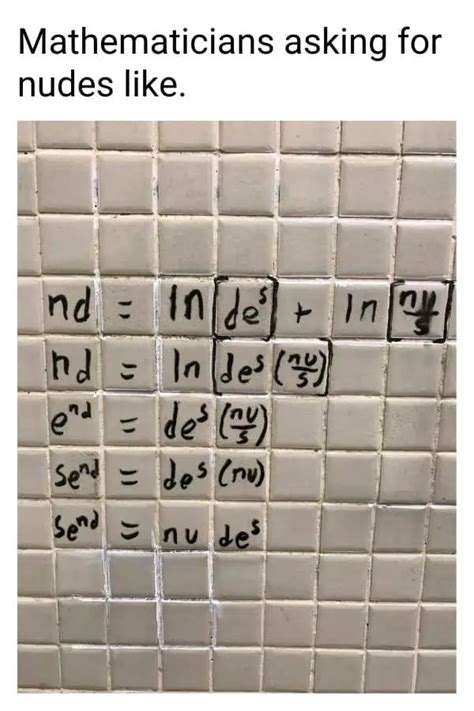 Mathematicians asking for
nudes like.
nd = ln[deˢ] + ln[nu/s]
nd = ln[deˢ(nu/s)]
eⁿᵈ = deˢ(nu/s)
seⁿᵈ = deˢ(nu)
seⁿᵈ = nu deˢ